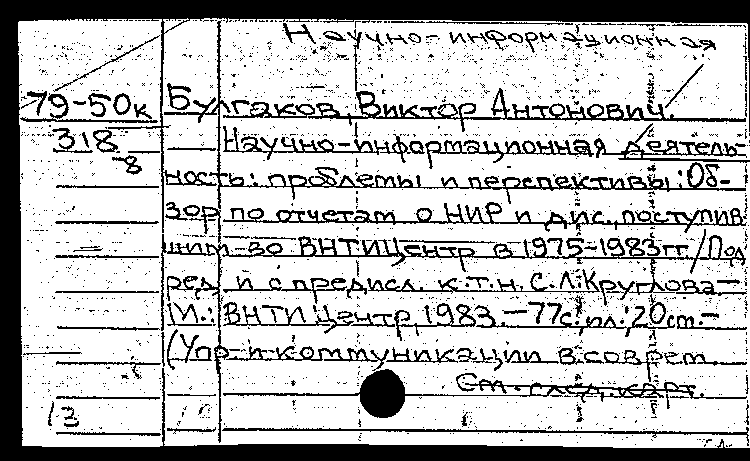 Научно-информационная
79-50к Булгаков, Виктор Антонович.
318 Научно-информационная деятель-
-8
ность: проблемы и перспективы: Об-
зор по отчетам о НИР и дис., поступив
шим во ВНТИЦентр в 1975-1983гг. / Под
ред. и с предисл. к.т.н. С.Л. Круглова –
М.: ВНТИЦентр, 1983. – 77с.; ил.; 20см. –
(Упр. и коммуникации в соврем.
См. след. карт.
13